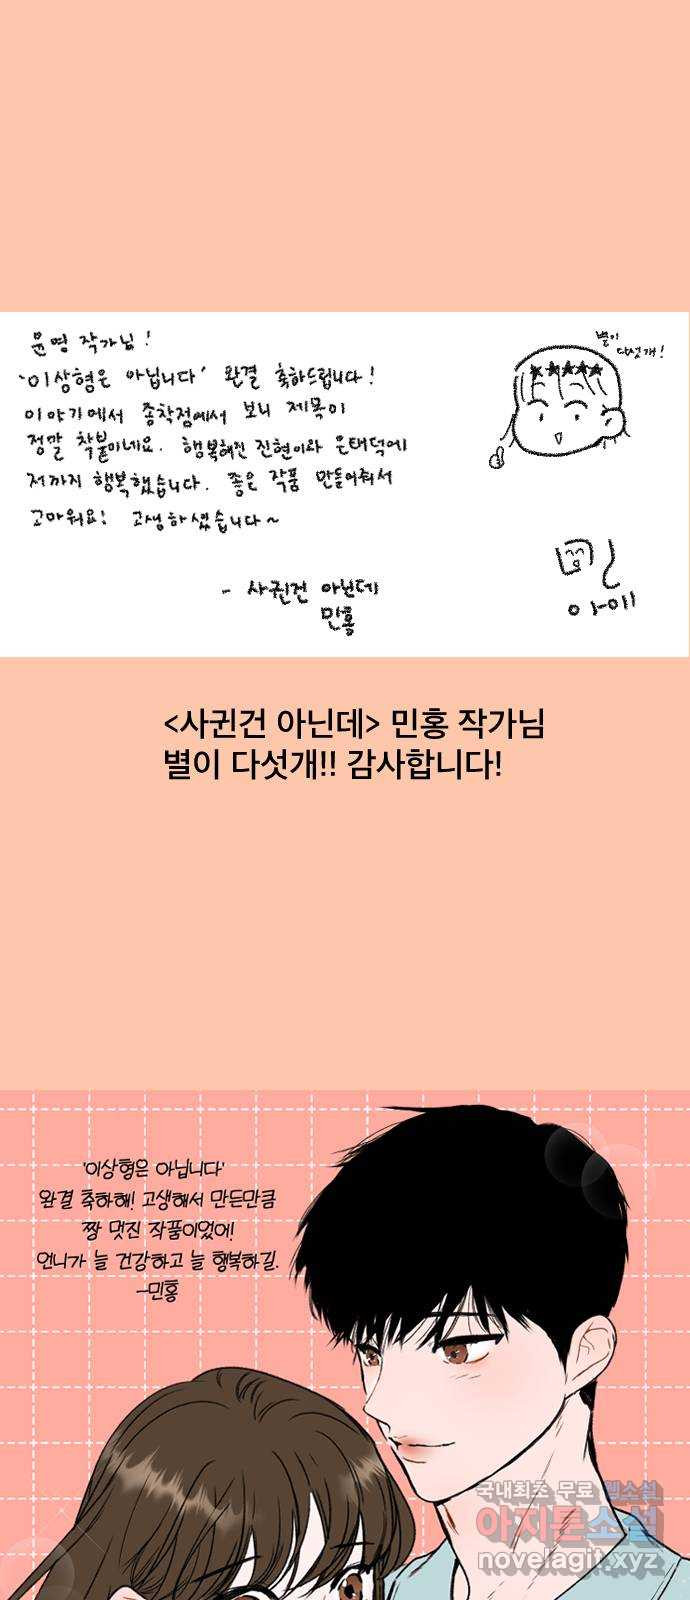 윤영 작가님!
'이상형은 아닙니다' 완결 축하드립니다!
이야기에서 종착점에서 보니 제목이
정말 착붙이네요. 행복해진 진현이와 은태덕에
저까지 행복했습니다. 좋은 작품 만들어줘서
고마워요! 고생하셨습니다~
- 사귄건 아닌데
민홍
별이
다섯개!
<사귄건 아닌데> 민홍 작가님
별이 다섯개!! 감사합니다!
'이상형은 아닙니다'
완결 축하해! 고생해서 만든만큼
짱 멋진 작품이었어!
언니가 늘 건강하고 늘 행복하길.
-민홍
국내최초 무료 웹소설
아지툰소설
novelagit.xyz